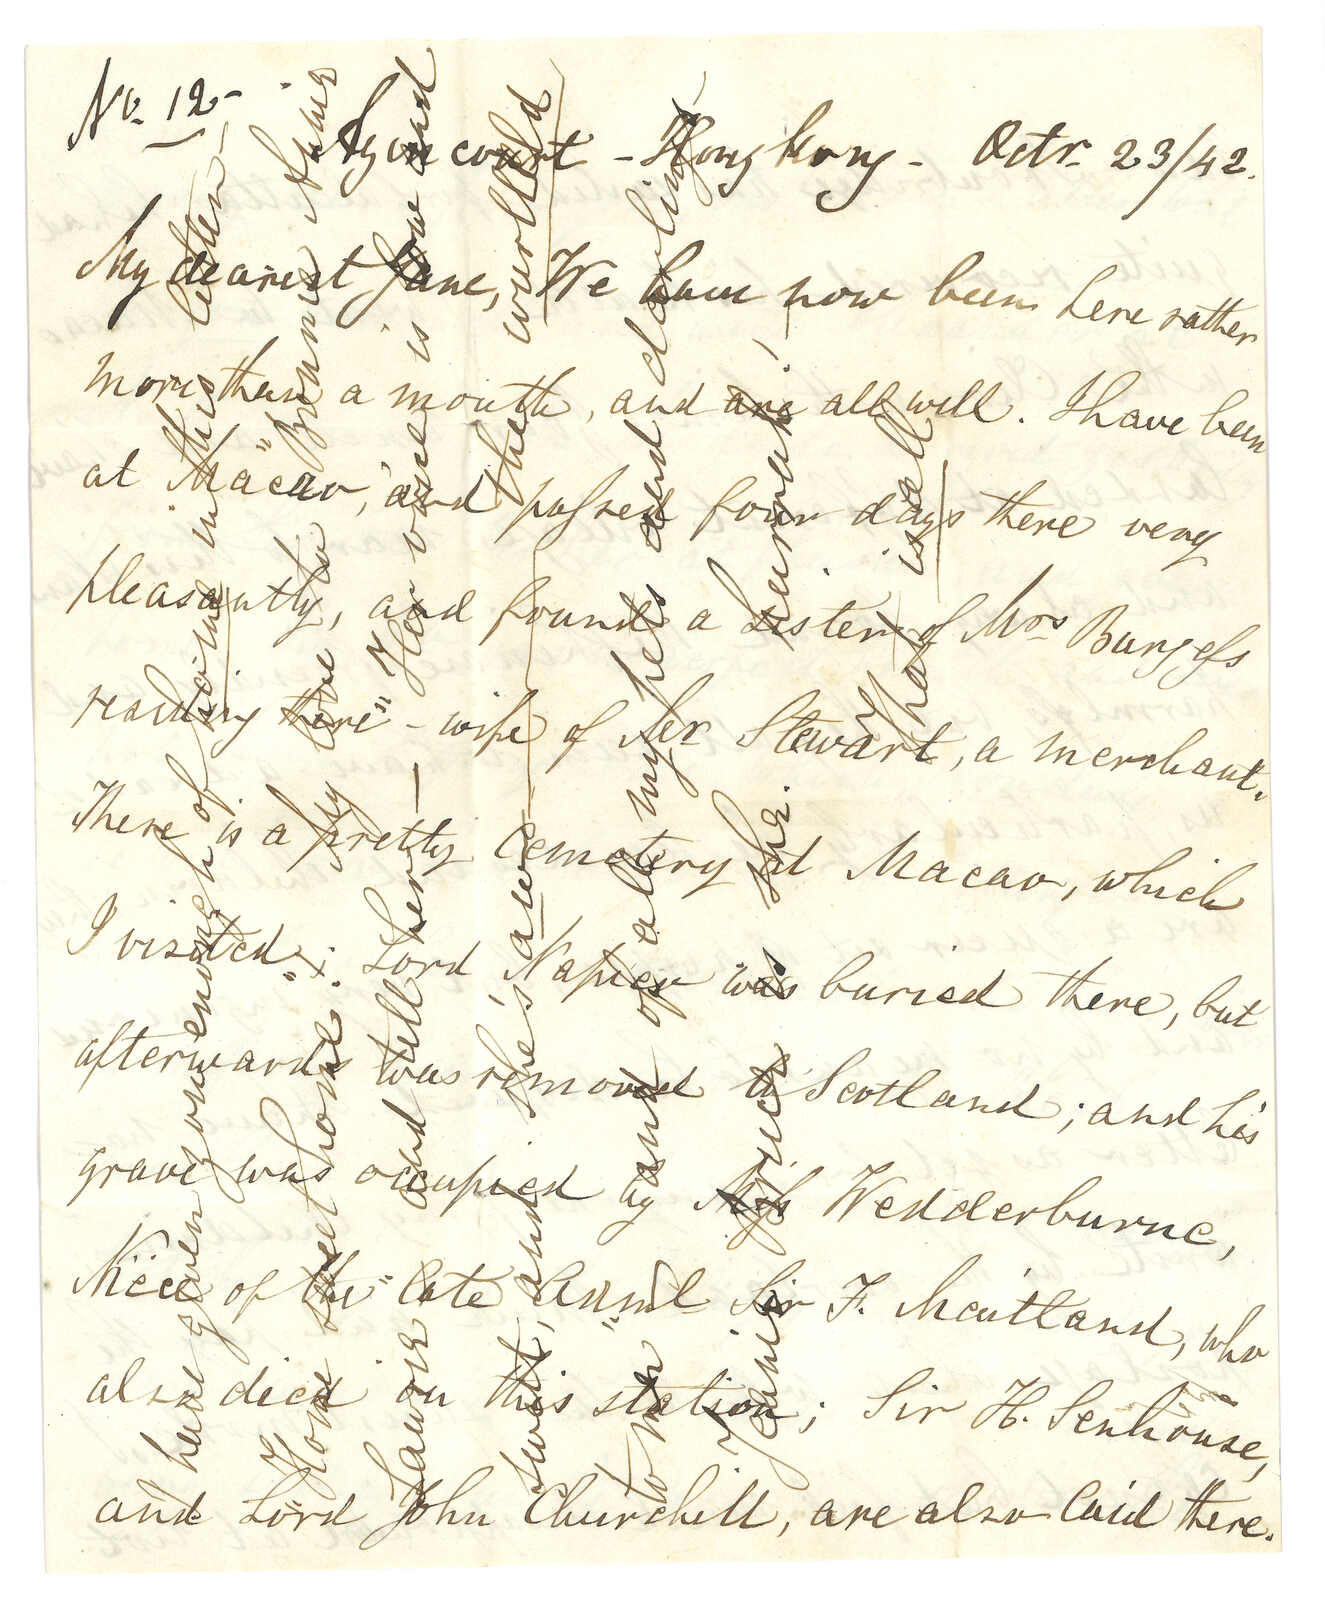 No. 12 -
Agincourt - Hong Kong - Octr. 23/42.
My dearest Jane, We have now been here rather
more than a month, and are all well. I have been
at Macao, and passed four days there very
pleasantly, and found a sister of Mrs Burgess
residing there - wife of Mr. Stewart, a merchant.
There is a pretty cemetery at Macao, which
I visited; Lord Napier was buried there, but
afterwards was removed to Scotland; and his
grave was occupied by Miss Wedderburne,
Niece of the late Adml Sir F. Maitland, who
also died on this station; Sir H. Senhouse,
and Lord John Churchill, are also laid there.
have given you enough of home in this letter -
"Home sweet home". My love to "Bonnie Annie
Lawrie" and tell her - "Her voice is low and
sweet, and she's a' the world
to me" and of all my pets and darlings
Jeanie is she. That is all